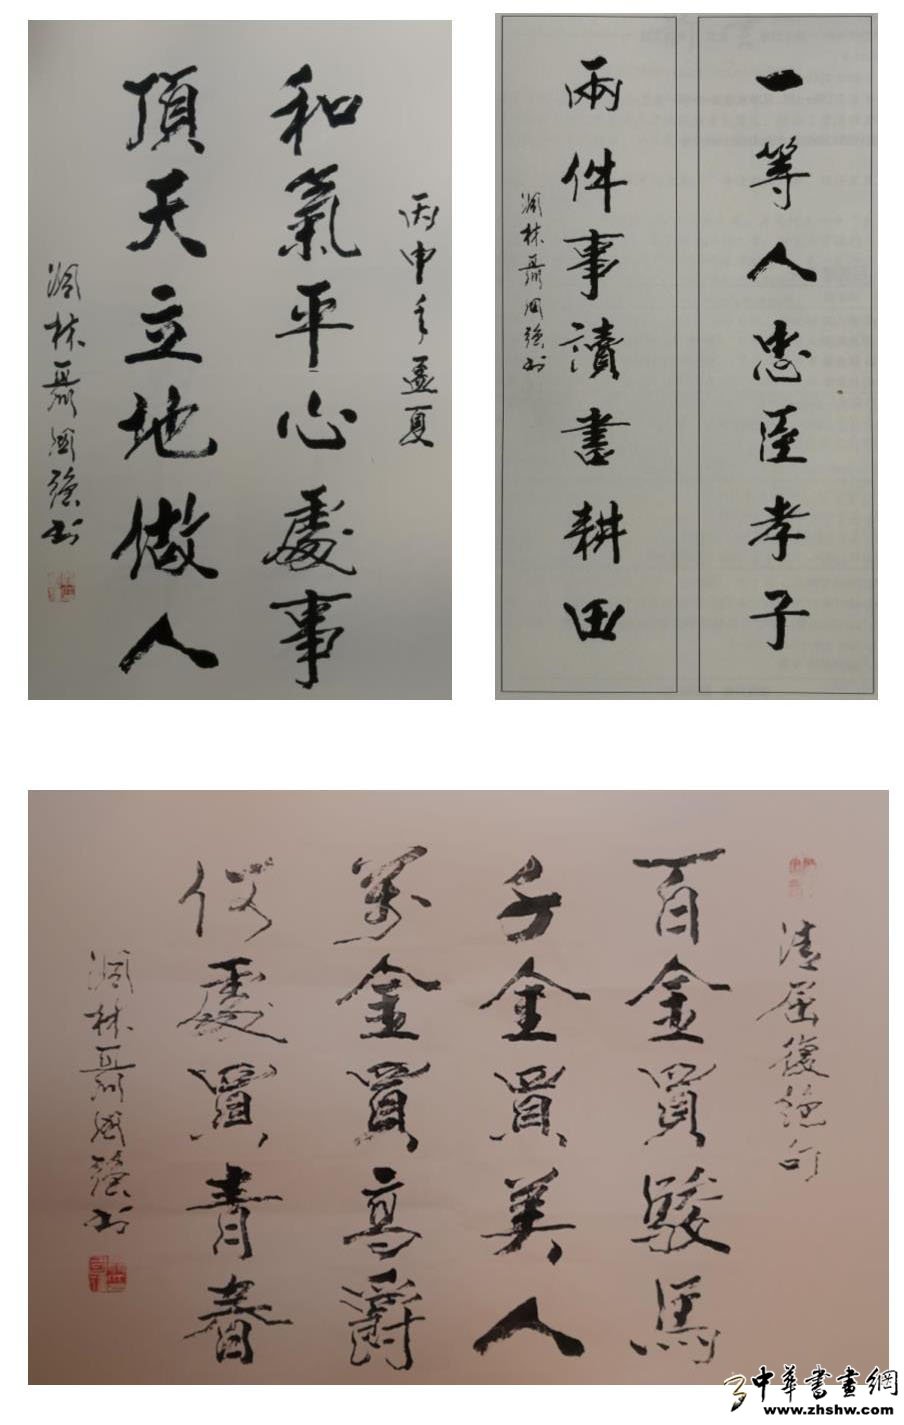 丙申年孟夏
和氣平心處事
頂天立地做人
澗林聶國強书
一等人忠臣孝子
兩件事讀書耕田
澗林聶國強书
清屈復絕句
百金買駿馬
千金買美人
萬金買高爵
何處買青春
澗林聶國強书
中華書畫網
www.zhshw.com